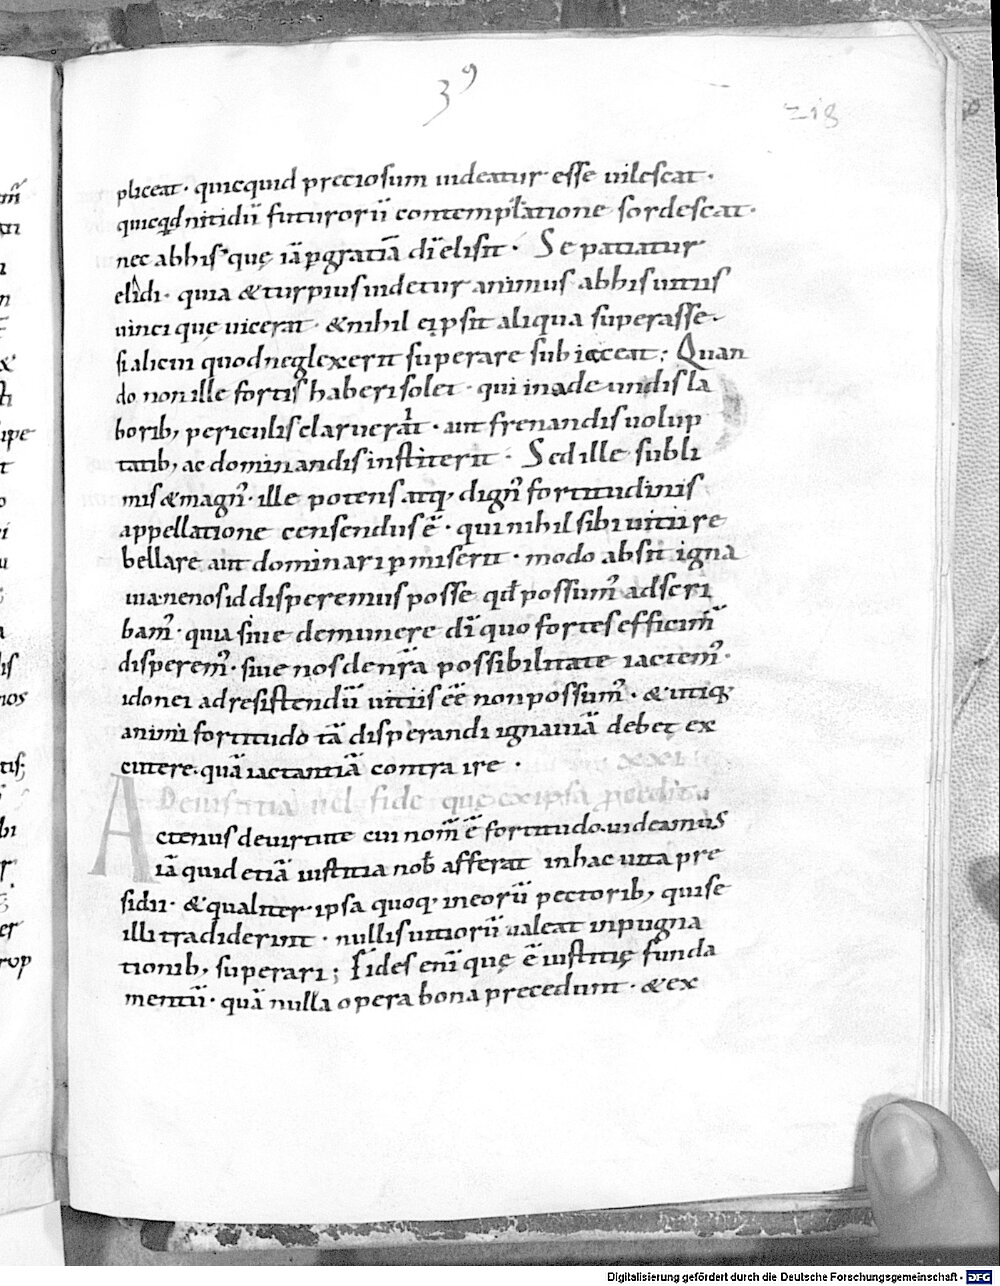 39
218
pliceat · quicquid preciosum uideatur esse uilescat ·
quicq̣dnitidū futurorū contemplatione sordescat ·
nec abhis quę iā ꝑgratiā dī elisit · Se patiatur
elidi · quia &turpius uidetur animus abhis uitiis
uinci quę uicerat · &nihil ei ꝑsit aliqua superasse ·
si alicui quod neglexerit superare subiaceat ; Quan
do non ille fortis haberi solet · qui inade undis la
borib; periculis claruerit · aut frenandis uolup
tatib; ac dominandis institerit · Sed ille subli
mis &magn᾽ · ille potens atq; dign᾽ fortitudinis
appellatione censendus ē · qui nihil sibi uitii re
bellare aut dominari ꝑmiserit · modo absit igna
uia · nenos id disperemus posse qđ possum᾽ adscri
bam᾽ · quia siue demunere dī quo fortes efficim᾽
disperem᾽ · siue nos denr̄a possibilitate iactem᾽ ·
idonei ad resistendū uitiis eē non possum᾽ · & utiq;
animi fortitudo tā disperandi ignauiā debet ex
cutere · quā iactantiā contra ire · XXXI
De iustitia uel fide quę ex ipsa
Actenus deuirtute cui nom̄ ē fortitudo · uideamus
iā quid etiā iustitia nob̄ afferat inhac uita pre
sidii · &qualiter ipsa quoq; ineorū pectorib; qui se
illi tradiderint · nullis uitiorū ualeat inpugna
tionib; superari ; Fides enī quę ē iustitię funda
mentū · quā nulla opera bona precedunt · &ex
Digitalisierung gefördert durch die Deutsche Forschungsgemeinschaft - DFG